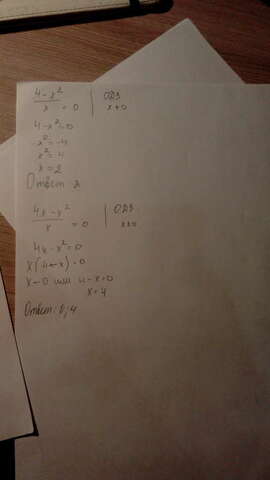 4-x² / x = 0 | ОДЗ x≠0
4-x²=0
-x²=-4
x²=4
x=2
Ответ: 2
4x-x² / x = 0 | ОДЗ x≠0
4x-x²=0
x(4-x)=0
x=0 или 4-x=0
x=4
Ответ: 0; 4